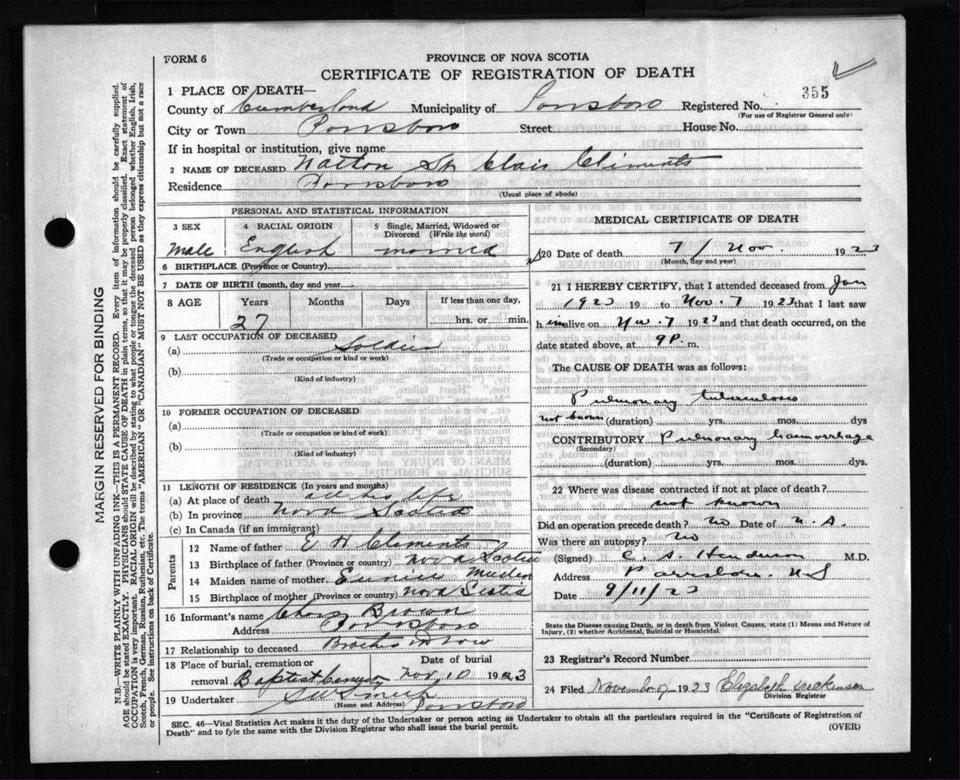 FORM 6
PROVINCE OF NOVA SCOTIA
CERTIFICATE OF REGISTRATION OF DEATH
355
1 PLACE OF DEATH—
County of Cumberland Municipality of Parrsboro Registered No.
(For use of Registrar General only)
City or Town Parrsboro Street House No.
If in hospital or institution, give name
2 NAME OF DECEASED St Clair Clements
Residence Parrsboro
(Usual place of abode)
PERSONAL AND STATISTICAL INFORMATION
3 SEX
Male
4 RACIAL ORIGIN
English
5 Single, Married, Widowed or Divorced (Write the word)
married
6 BIRTHPLACE (Province or Country)
7 DATE OF BIRTH (month, day and year)
8 AGE Years Months Days If less than one day,
27 hrs. or min.
9 LAST OCCUPATION OF DECEASED
(a) Soldier
(Trade or occupation or kind or work)
(b)
(Kind of industry)
10 FORMER OCCUPATION OF DECEASED
(a)
(Trade or occupation or kind of work)
(b)
(Kind of industry)
11 LENGTH OF RESIDENCE (In years and months)
(a) At place of death all his life
(b) In province Nova Scotia
(c) In Canada (if an immigrant)
Parents
12 Name of father E H Clements
13 Birthplace of father (Province or country) Nova Scotia
14 Maiden name of mother Eunice
15 Birthplace of mother (Province or country) Nova Scotia
16 Informant's name Chas Brown
Address Parrsboro
17 Relationship to deceased Brother in Law
18 Place of burial, cremation or removal Baptist Cemetery
Date of burial
Nov 10 1923
19 Undertaker Smith
(Name and Address) Parrsboro
MEDICAL CERTIFICATE OF DEATH
20 Date of death 7 / Nov. 1923
(Month, day and year)
21 I HEREBY CERTIFY, that I attended deceased from Jan
1923 19 to Nov. 7 1923 that I last saw
h im alive on Nov. 7 1923 and that death occurred, on the
date stated above, at 9 P. m.
The CAUSE OF DEATH was as follows:
Pulmonary tuberculosis
not known (duration) yrs. mos. dys.
CONTRIBUTORY Pulmonary haemorrhage
(Secondary)
(duration) yrs. mos. dys.
22 Where was disease contracted if not at place of death?
not known
Did an operation precede death? No Date of N. A.
Was there an autopsy? No
(Signed) C. S. Henderson M.D.
Address Parrsboro. N.S
Date 9/11/23
State the Disease causing Death, or in death from Violent Causes, state (1) Means and Nature of
Injury, (2) whether Accidental, Suicidal or Homicidal.
23 Registrar's Record Number
24 Filed November 9 1923 Elizabeth
Division Registrar
SEC. 46—Vital Statistics Act makes it the duty of the Undertaker or person acting as Undertaker to obtain all the particulars required in the "Certificate of Registration of
Death" and to fyle the same with the Division Registrar who shall issue the burial permit. (OVER)
MARGIN RESERVED FOR BINDING
N.B.—WRITE PLAINLY WITH UNFADING INK—THIS IS A PERMANENT RECORD. Every item of information should be carefully supplied.
AGE should be stated EXACTLY. PHYSICIANS should STATE CAUSE OF DEATH in plain terms, so that it may be properly classified. Exact statement of
OCCUPATION is very important. RACIAL ORIGIN will be described by stating to what people or tongue the deceased person belonged whether English, Irish,
Scotch, French, German, Russian, Ruthenian, etc. The terms "AMERICAN" or "CANADIAN" MUST NOT BE USED as they express citizenship but not a race
or people. See instructions on back of Certificate.